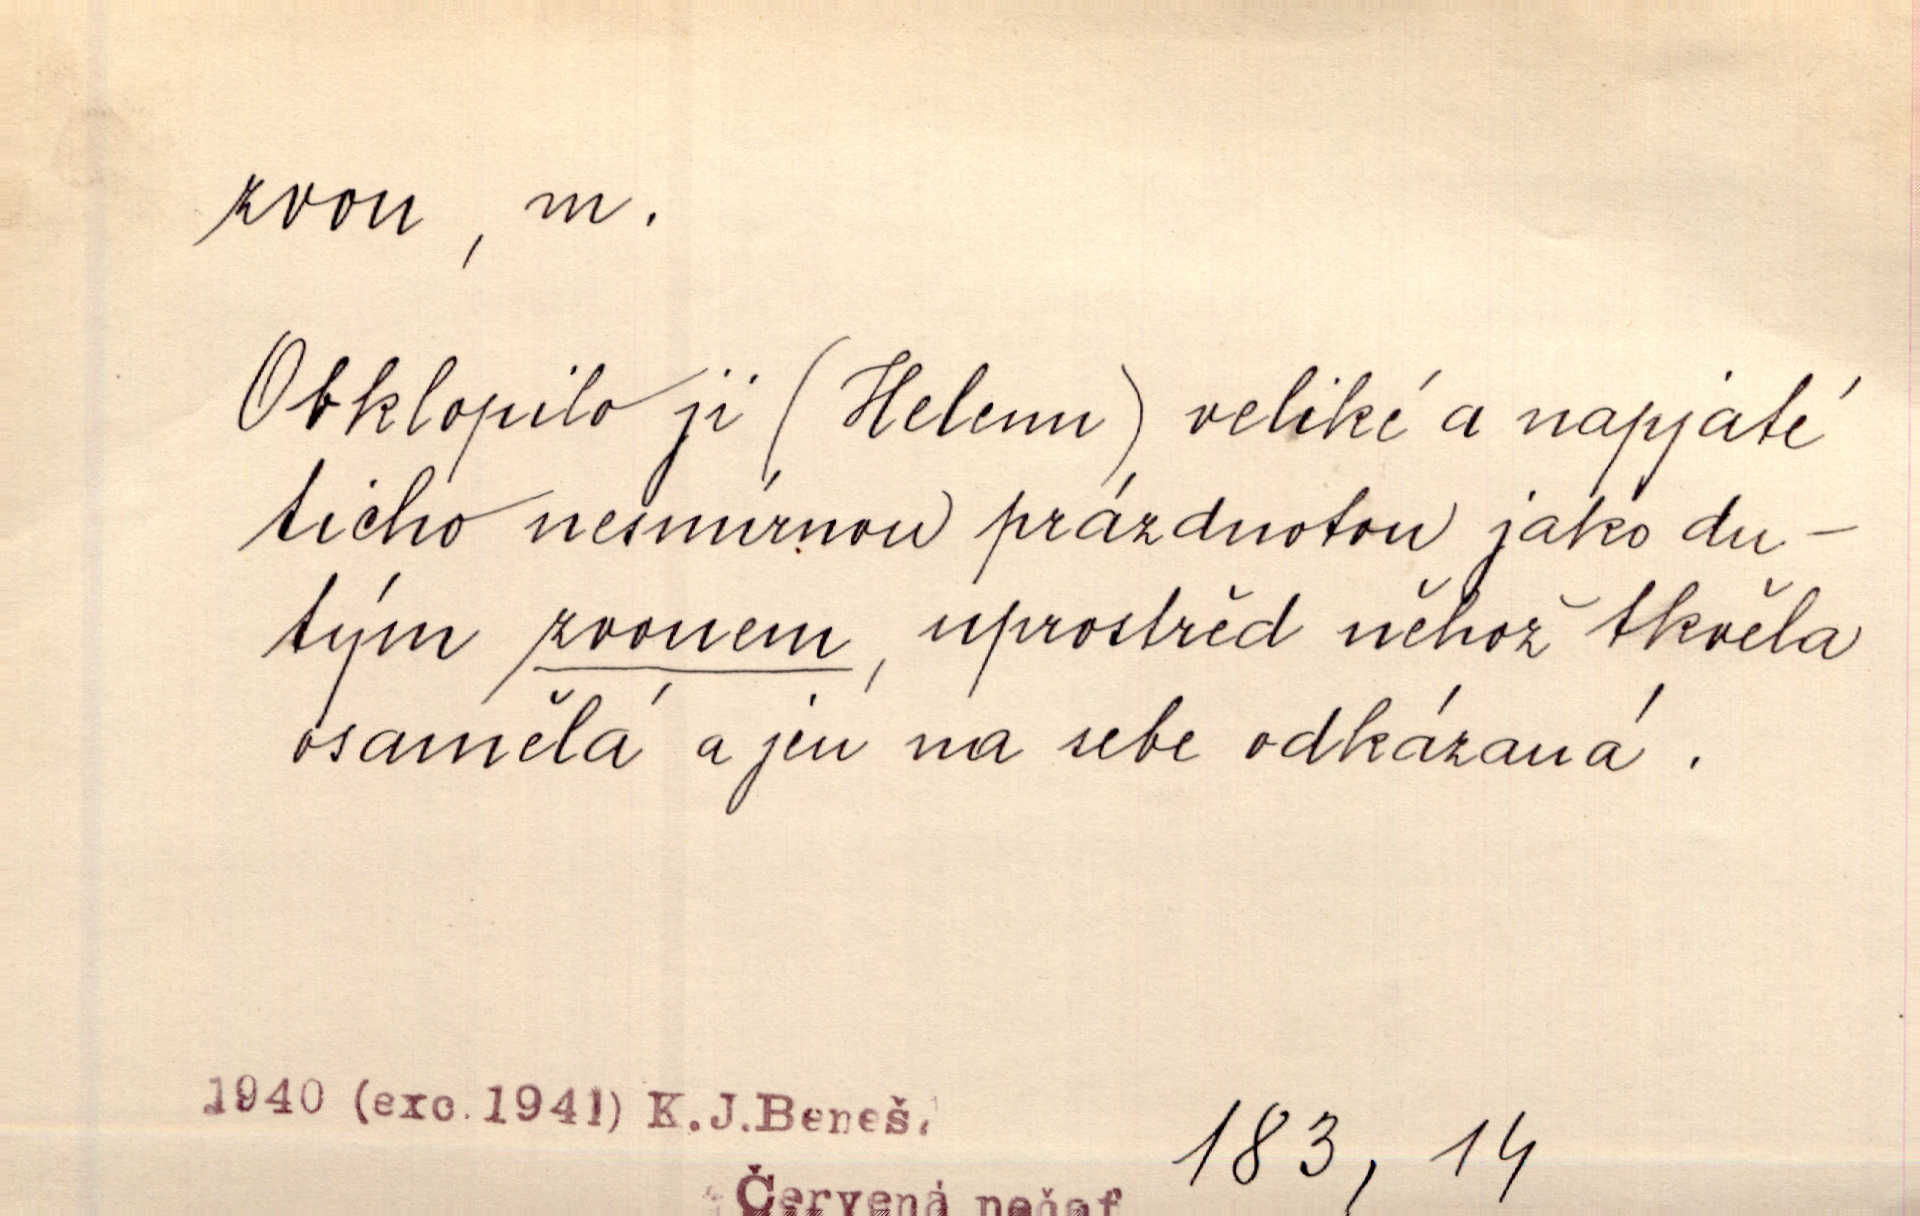 zvon, m.
Obklopilo ji (Helenu) veliké a napjaté
ticho nesmírnou prázdnotou jako du-
tým zvonem, uprostřed něhož tkvěla
osamělá a jen na sebe odkázaná.
1940 (exc. 1941) K.J.Beneš.
Červená pečeť
183, 14